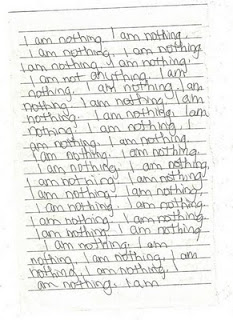 I am nothing. I am nothing.
I am nothing. I am nothing.
I am nothing. I am nothing.
I am not anything. I am
nothing. I am nothing. I am
nothing. I am nothing. I am
nothing. I am nothing. I am
nothing. I am nothing. I
am nothing. I am nothing.
I am nothing. I am nothing.
I am nothing. I am nothing.
I am nothing. I am nothing.
I am nothing. I am nothing.
I am nothing. I am nothing.
I am nothing. I am nothing.
I am nothing. I am nothing
I am nothing. I am
nothing. I am nothing. I am
nothing. I am nothing. I
am nothing. I am